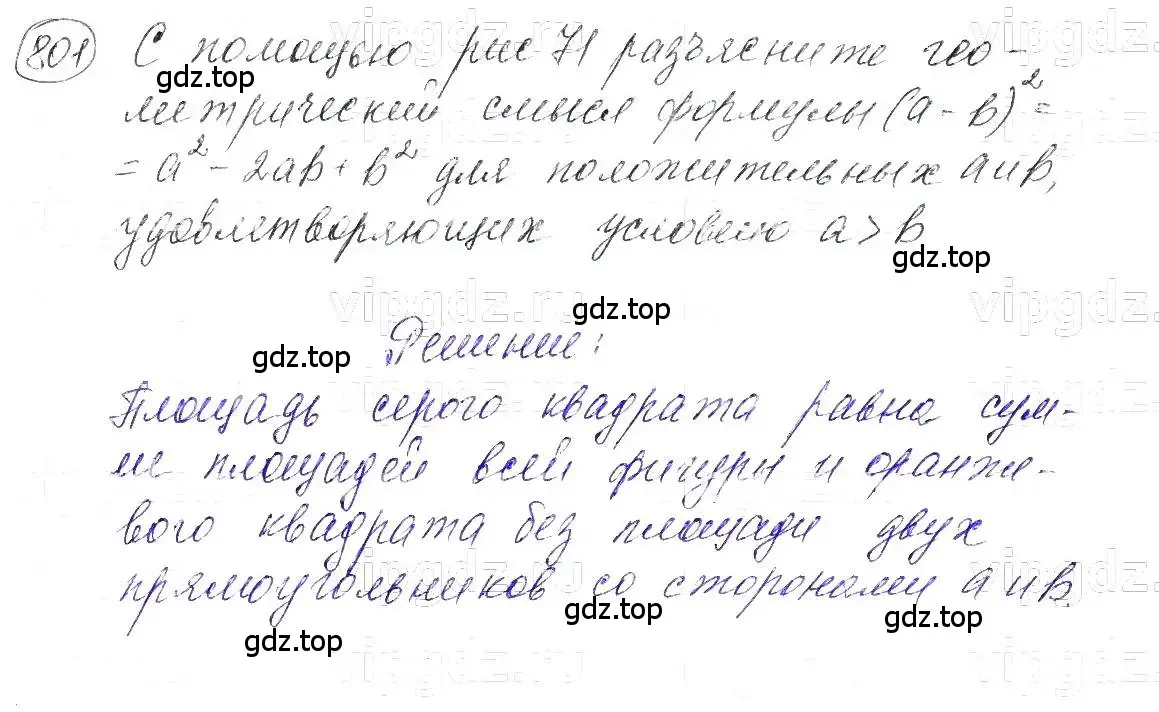 801 С помощью рис 71 разъясните гео-
метрический смысл формулы (a - b)² =
= a² - 2ab + b² для положительных a и b,
удовлетворяющих условию a > b
Решение:
Площадь серого квадрата равна сум-
ме площадей всей фигуры и оранже-
вого квадрата без площади двух
прямоугольников со сторонами a и b.
gdz.top
gdz.top
gdz.top
gdz.top
gdz.top
gdz.top
gdz.top
gdz.top
gdz.top
gdz.top
gdz.top
vipgdz.ru
vipgdz.ru
vipgdz.ru